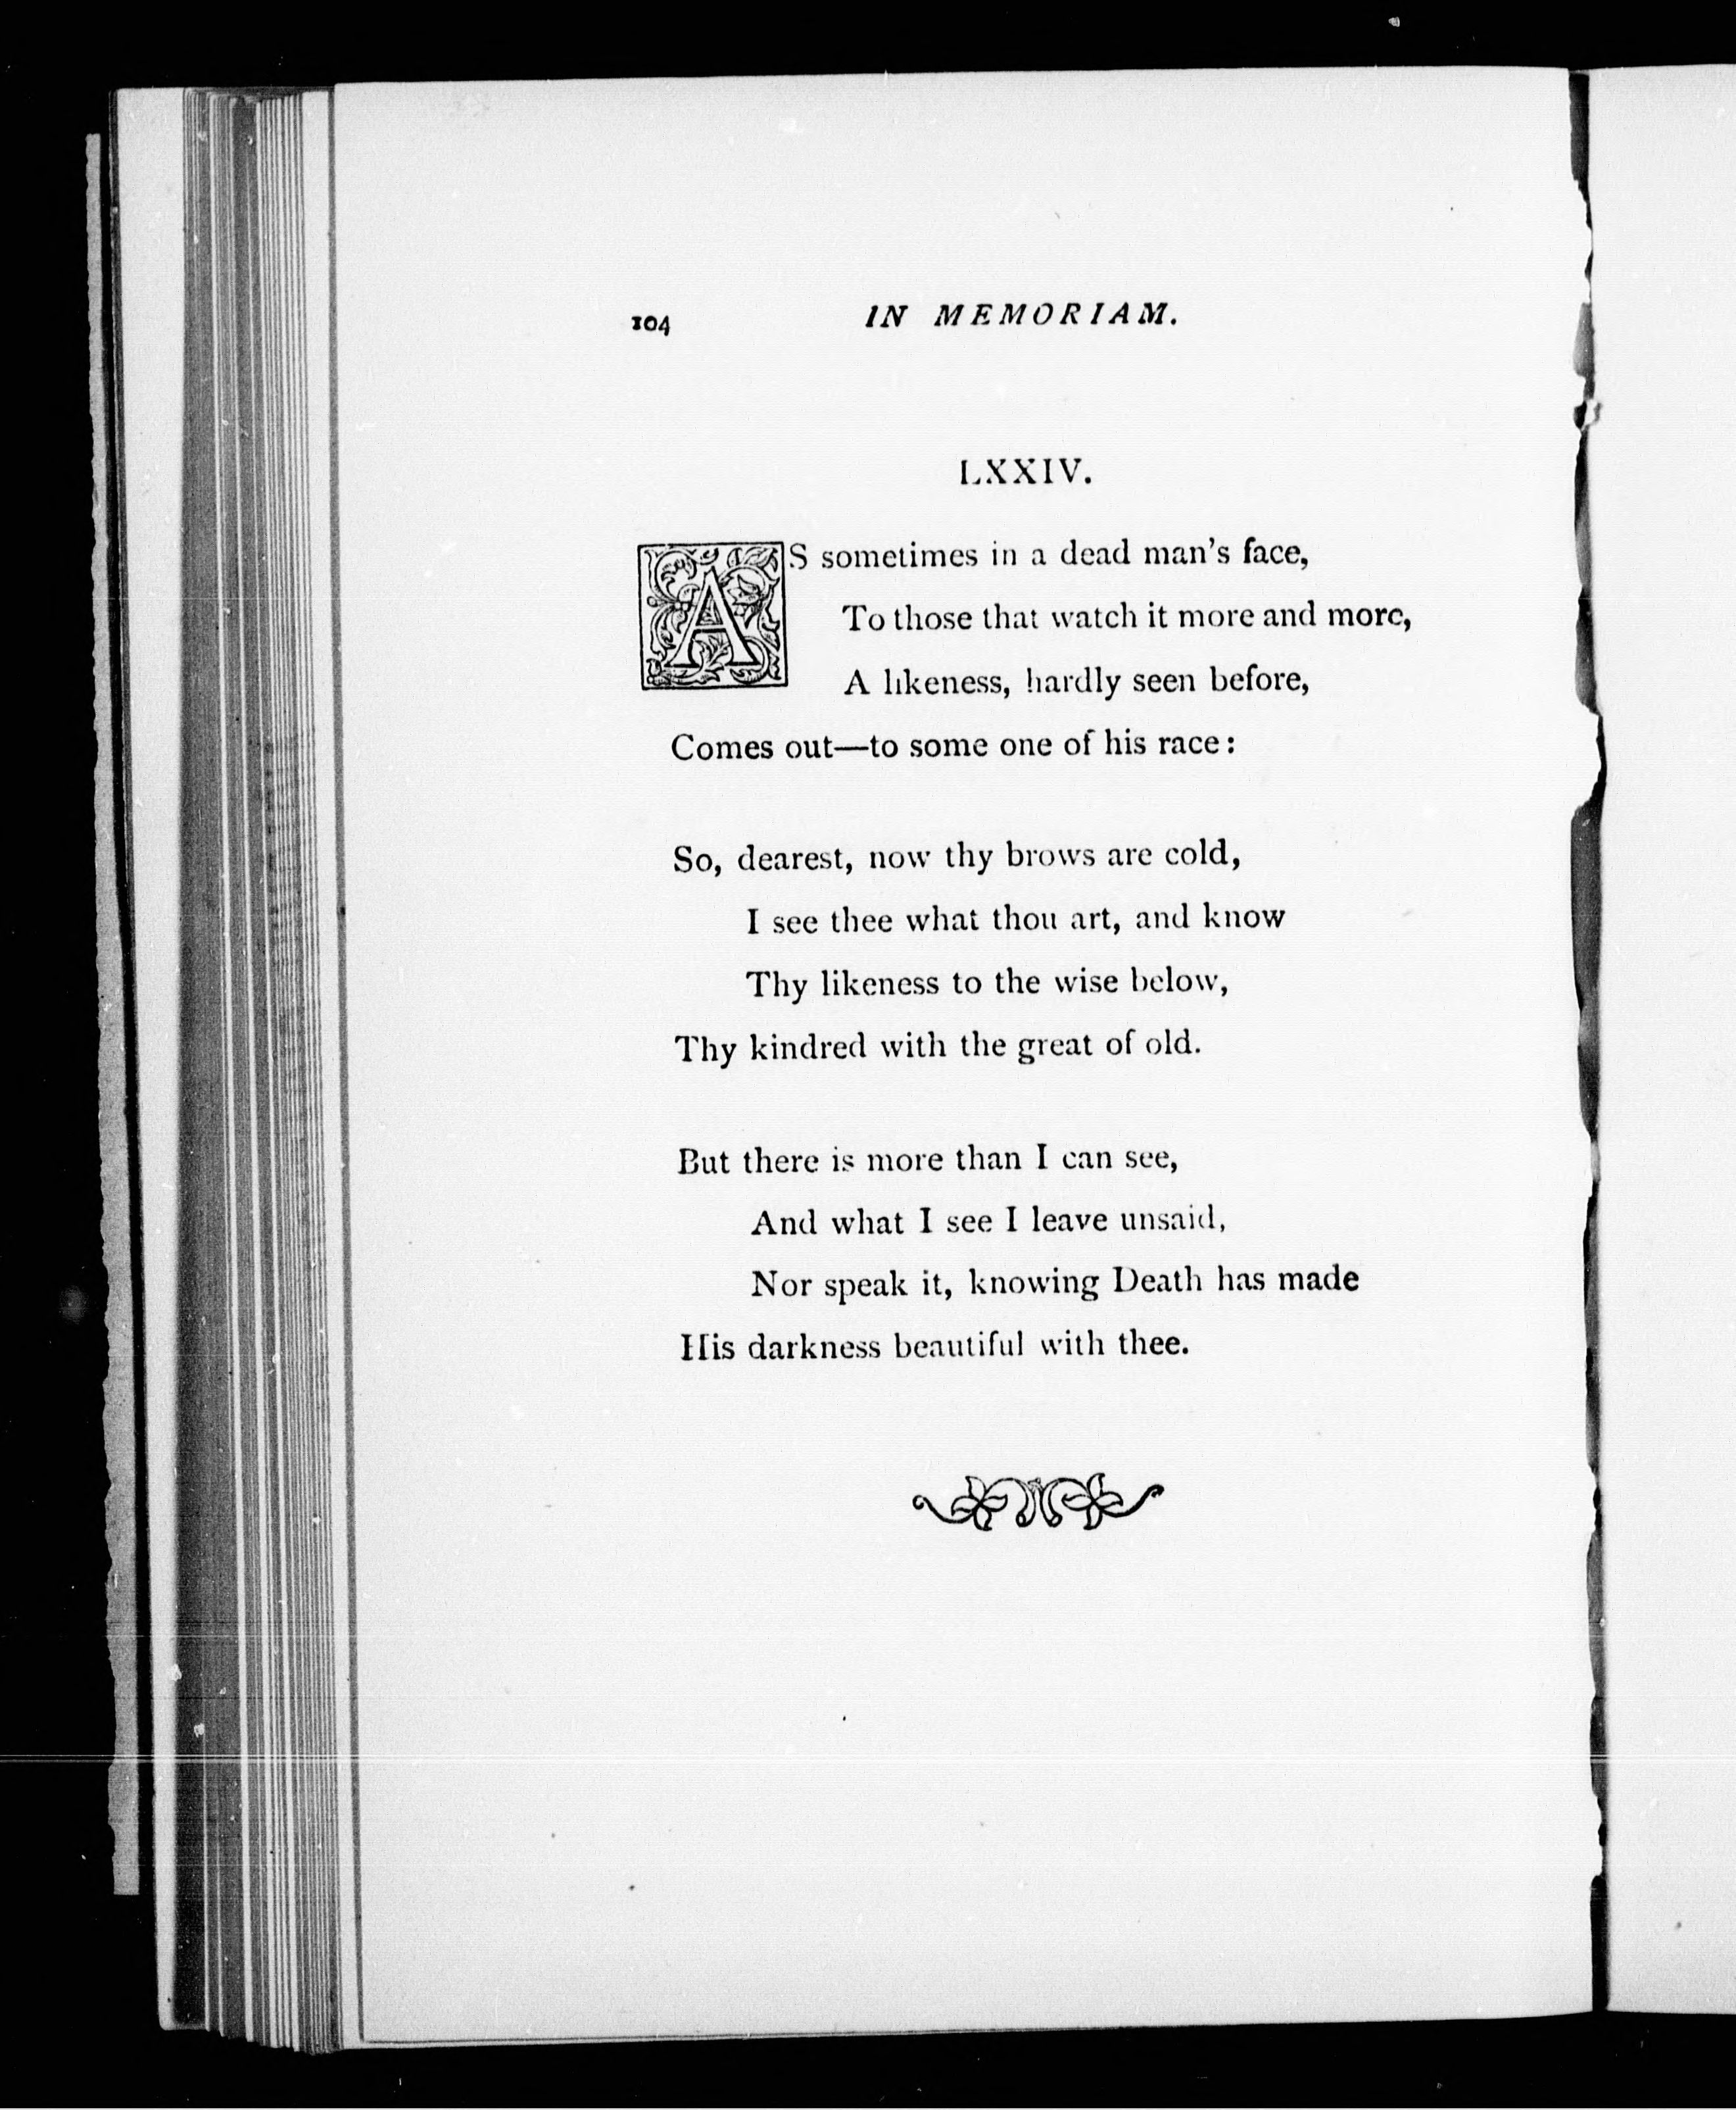 104 IN MEMORIAM.
LXXIV.
AS sometimes in a dead man's face,
To those that watch it more and more,
A likeness, hardly seen before,
Comes out—to some one of his race:
So, dearest, now thy brows are cold,
I see thee what thou art, and know
Thy likeness to the wise below,
Thy kindred with the great of old.
But there is more than I can see,
And what I see I leave unsaid,
Nor speak it, knowing Death has made
His darkness beautiful with thee.